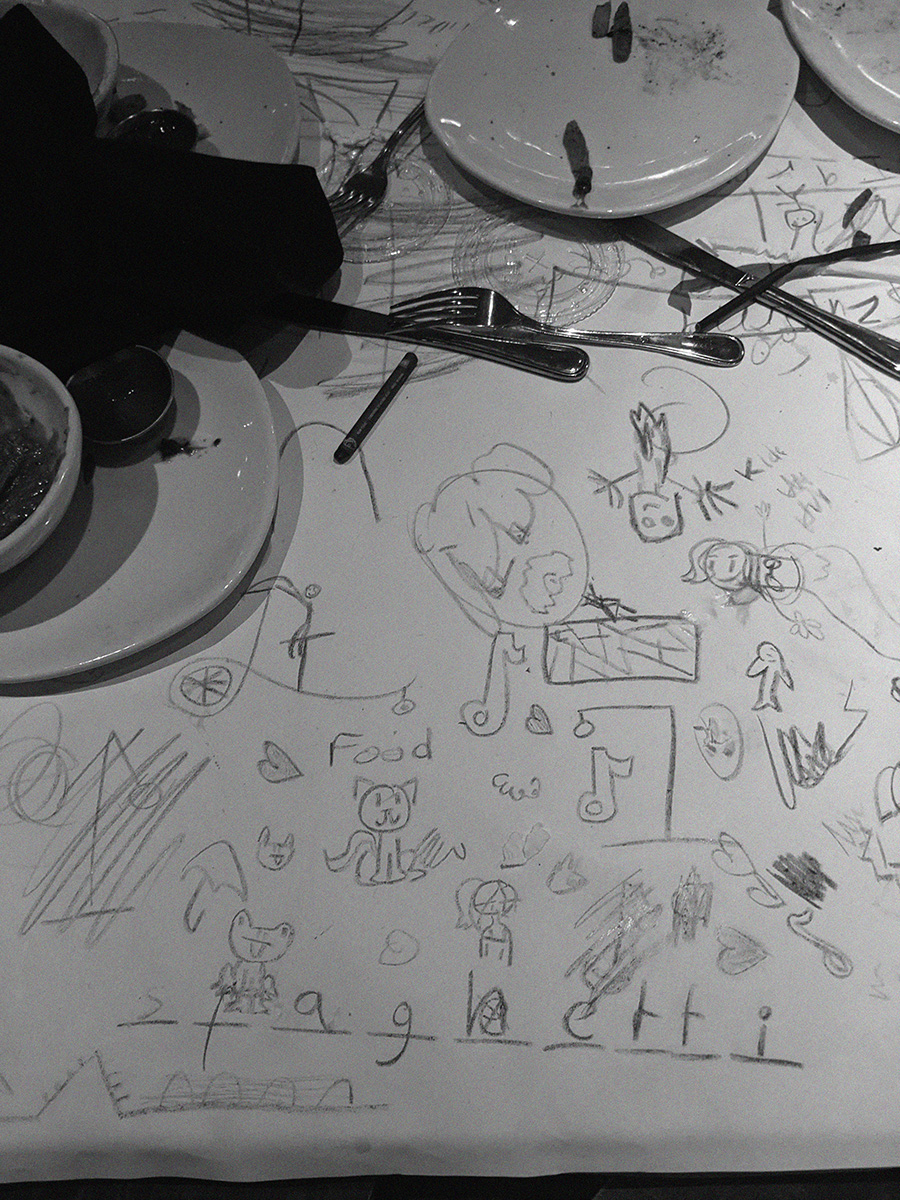 Food
s p a g h e t t i